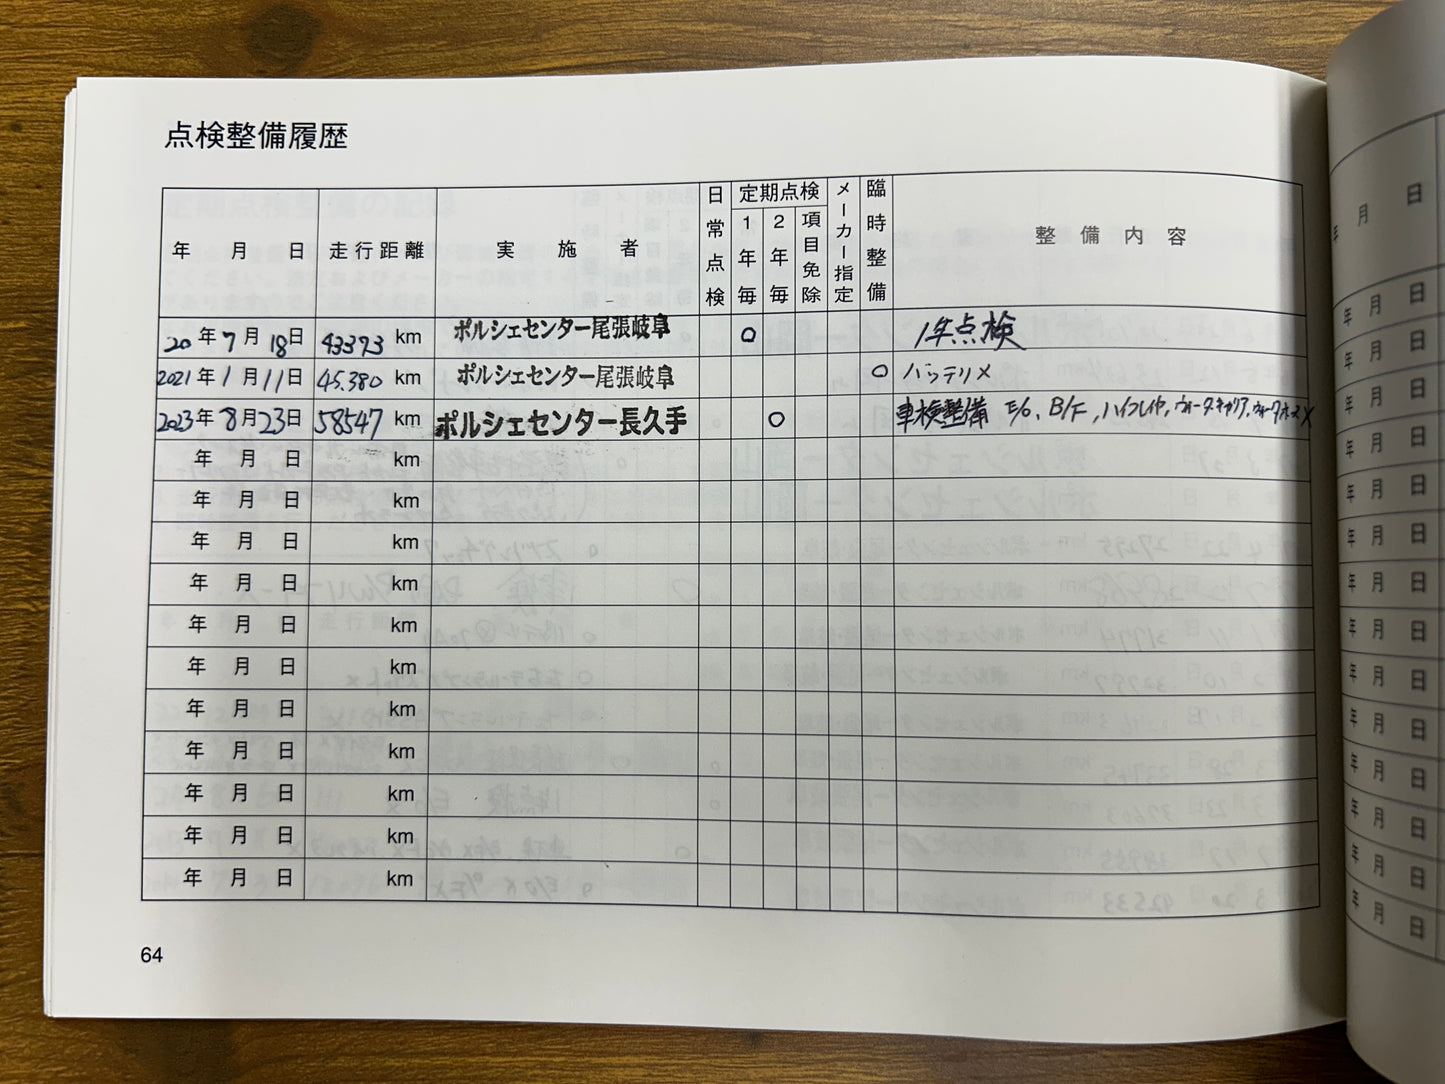 点検整備履歴
年 月 日 走行距離 実施者 日常点検 定期点検 1年毎 2年毎 項目免除 メーカー指定 臨時整備 整備内容
20年7月18日 43393 km ポルシェセンター尾張岐阜 ○ 1年点検
2021年1月11日 45,380 km ポルシェセンター尾張岐阜 ○ バッテリ×
2023年8月23日 58547 km ポルシェセンター長久手 ○ 車検整備 E/O、B/F、
年 月 日 km
年 月 日 km
年 月 日 km
年 月 日 km
年 月 日 km
年 月 日 km
年 月 日 km
年 月 日 km
年 月 日 km
年 月 日 km
年 月 日 km
64
年 月 日
年 月 日
年 月 日
年 月 日
年 月 日
年 月 日
年 月 日
年 月 日
年 月 日
年 月 日
年 月 日
年 月 日
年 月 日
年 月 日
年 月 日